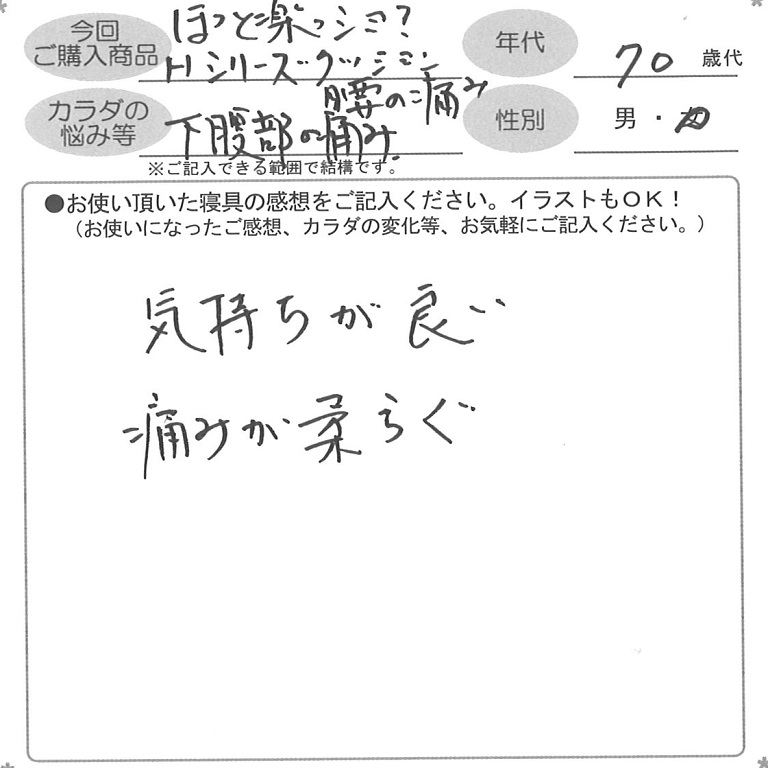 今回
ご購入商品
ほっと楽っション?
トリシリーズクッション
年代
70 歳代
カラダの
悩み等
腰の痛み
下腹部の痛み
性別
男・女
※ご記入できる範囲で結構です。
●お使い頂いた寝具の感想をご記入ください。イラストもOK!
(お使いになったご感想、カラダの変化等、お気軽にご記入ください。)
気持ちが良い
痛みが柔らぐ